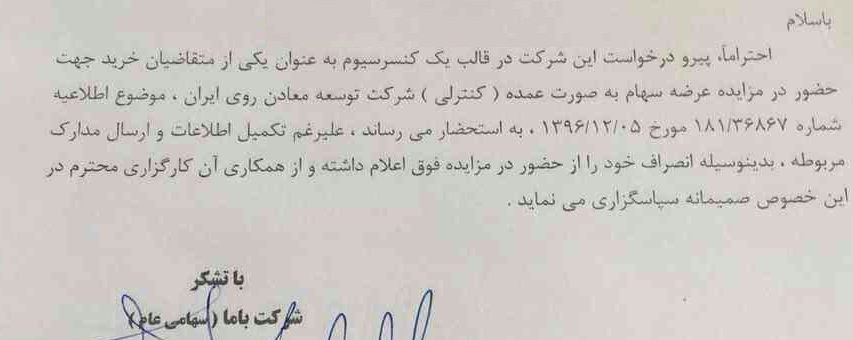 باسلام
احتراماً، پیرو درخواست این شرکت در قالب یک کنسرسیوم به عنوان یکی از متقاضیان خرید جهت
حضور در مزایده عرضه سهام به صورت عمده ( کنترلی ) شرکت توسعه معادن روی ایران ، موضوع اطلاعیه
شماره ۱۸۱/۳۶۸۶۷ مورخ ۱۳۹۶/۱۲/۰۵ ، به استحضار می رساند ، علیرغم تکمیل اطلاعات و ارسال مدارک
مربوطه ، بدینوسیله انصراف خود را از حضور در مزایده فوق اعلام داشته و از همکاری آن کارگزاری محترم در
این خصوص صمیمانه سپاسگزاری می نماید .
با تشکر
شرکت باما (سهامی عام)